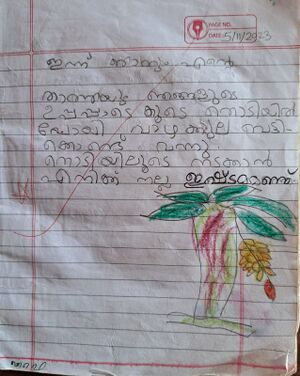 PAGE NO.
DATE 5/11/2023
ഇന്ന് ഞാനും എന്റെ
താത്തയും ഞങ്ങളുടെ
ഉപ്പപ്പാടെ കൂടെ തൊടിയിൽ
പോയി വാഴക്കുല വെട്ടി-
ക്കൊണ്ടു വന്നു.
തൊടിയിലൂടെ നടക്കാൻ
എനിക്ക് നല്ല ഇഷ്ടമാണ്